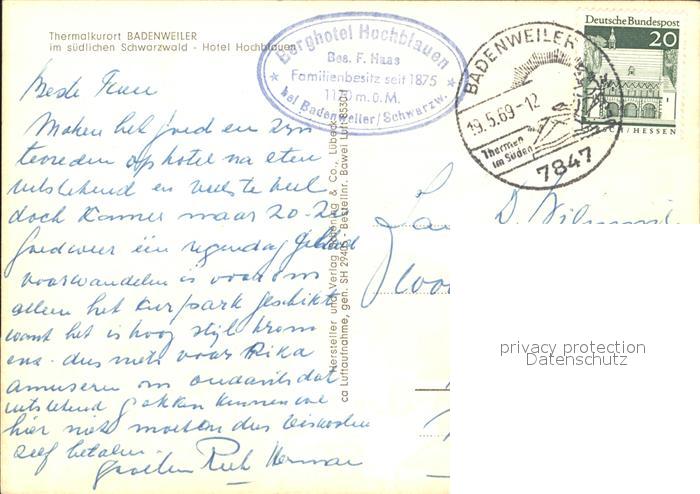 Thermalkurort BADENWEILER
im südlichen Schwarzwald - Hotel Hochblauen
Berghotel Hochblauen
Bes. F. Haas
Familienbesitz seit 1875
1170 m.ü.M.
bei Badenweiler/Schwarzw.
BADENWEILER
19.5.69-12
Thermen
im Süden
7847
Deutsche Bundespost
20
SCH/HESSEN
Beste Fram
Maken het goed en zyn
tevreden op hotel na eten
uitstekend en veel te veel
doch Kamer maar 20-2
Goed weer één regendag gehad
voor wandelen is vooral
alleen het Kurpark geschikt
want het is hoog styl krom
enz. dus niets voor Rika
amuseren ons ondanks dat
uitstekend
hier niet moeten dus
zelf betalen.
Groeten Riek Herman
Hersteller und Verlag & Co., Lübeck
ca Luftaufnahme, gen. SH 294 - Bestellnr. Bawei Luft 8530
D.
privacy protection
Datenschutz